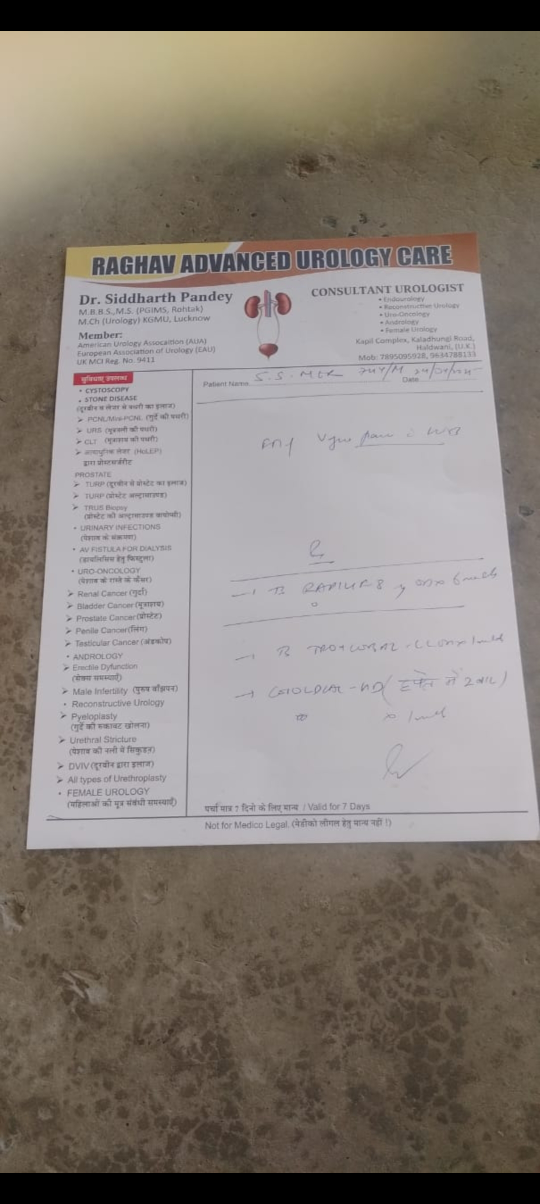 RAGHAV ADVANCED UROLOGY CARE
Dr. Siddharth Pandey
M.B.B.S.,M.S. (PGIMS, Rohtak)
M.Ch (Urology) KGMU, Lucknow
Member:
American Urology Assocaition (AUA)
European Association of Urology (EAU)
UK MCI Reg. No. 9411
CONSULTANT UROLOGIST
• Endourology
• Reconstructive Urology
• Uro-Oncology
• Andrology
• Female Urology
Kapil Complex, Kaladhungi Road,
Haldwani, (U.K.)
Mob: 7895095928, 9634788133
Patient Name
Date
सुविधाएं उपलब्ध
• CYSTOSCOPY
• STONE DISEASE
(दूरबीन व लेजर से पथरी का इलाज)
➤ PCNL/Mini-PCNL (गुर्दे की पथरी)
➤ URS (मूत्रनली की पथरी)
➤ CLT (मूत्राशय की पथरी)
➤ अत्याधुनिक लेजर (HoLEP)
द्वारा प्रोस्टसर्जरी
PROSTATE
➤ TURP (दूरबीन से प्रोस्टेट का इलाज)
➤ TURP (प्रोस्टेट अल्ट्रासाउण्ड)
➤ TRUS Biopsy
(प्रोस्टेट की अल्ट्रासाउण्ड बायोप्सी)
• URINARY INFECTIONS
(पेशाब के संक्रमण)
• AV FISTULA FOR DIALYSIS
(डायलिसिस हेतु फिस्टुला)
• URO-ONCOLOGY
(पेशाब के रास्ते के कैंसर)
➤ Renal Cancer (गुर्दा)
➤ Bladder Cancer (मूत्राशय)
➤ Prostate Cancer (प्रोस्टेट)
➤ Penile Cancer (लिंग)
➤ Testicular Cancer (अंडकोष)
• ANDROLOGY
➤ Erectile Dyfunction
(सेक्स समस्याएँ)
➤ Male Infertility (पुरुष बाँझपन)
• Reconstructive Urology
➤ Pyeloplasty
(गुर्दे की रुकावट खोलना)
➤ Urethral Stricture
(पेशाब की नली में सिकुड़न)
➤ DVIV (दूरबीन द्वारा इलाज)
➤ All types of Urethroplasty
• FEMALE UROLOGY
(महिलाओं की मूत्र संबंधी समस्याएँ)
(हफ्ते में 2 बार)
पर्चा मात्र 7 दिनो के लिए मान्य / Valid for 7 Days
Not for Medico Legal. (मेडीको लीगल हेतु मान्य नहीं !)